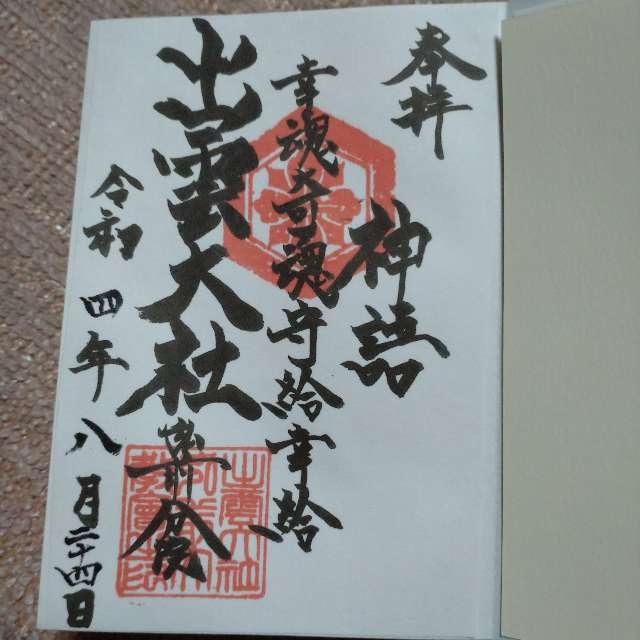 奉拝
神語
幸魂奇魂守給幸給
出雲大社
令和四年八月二十四日